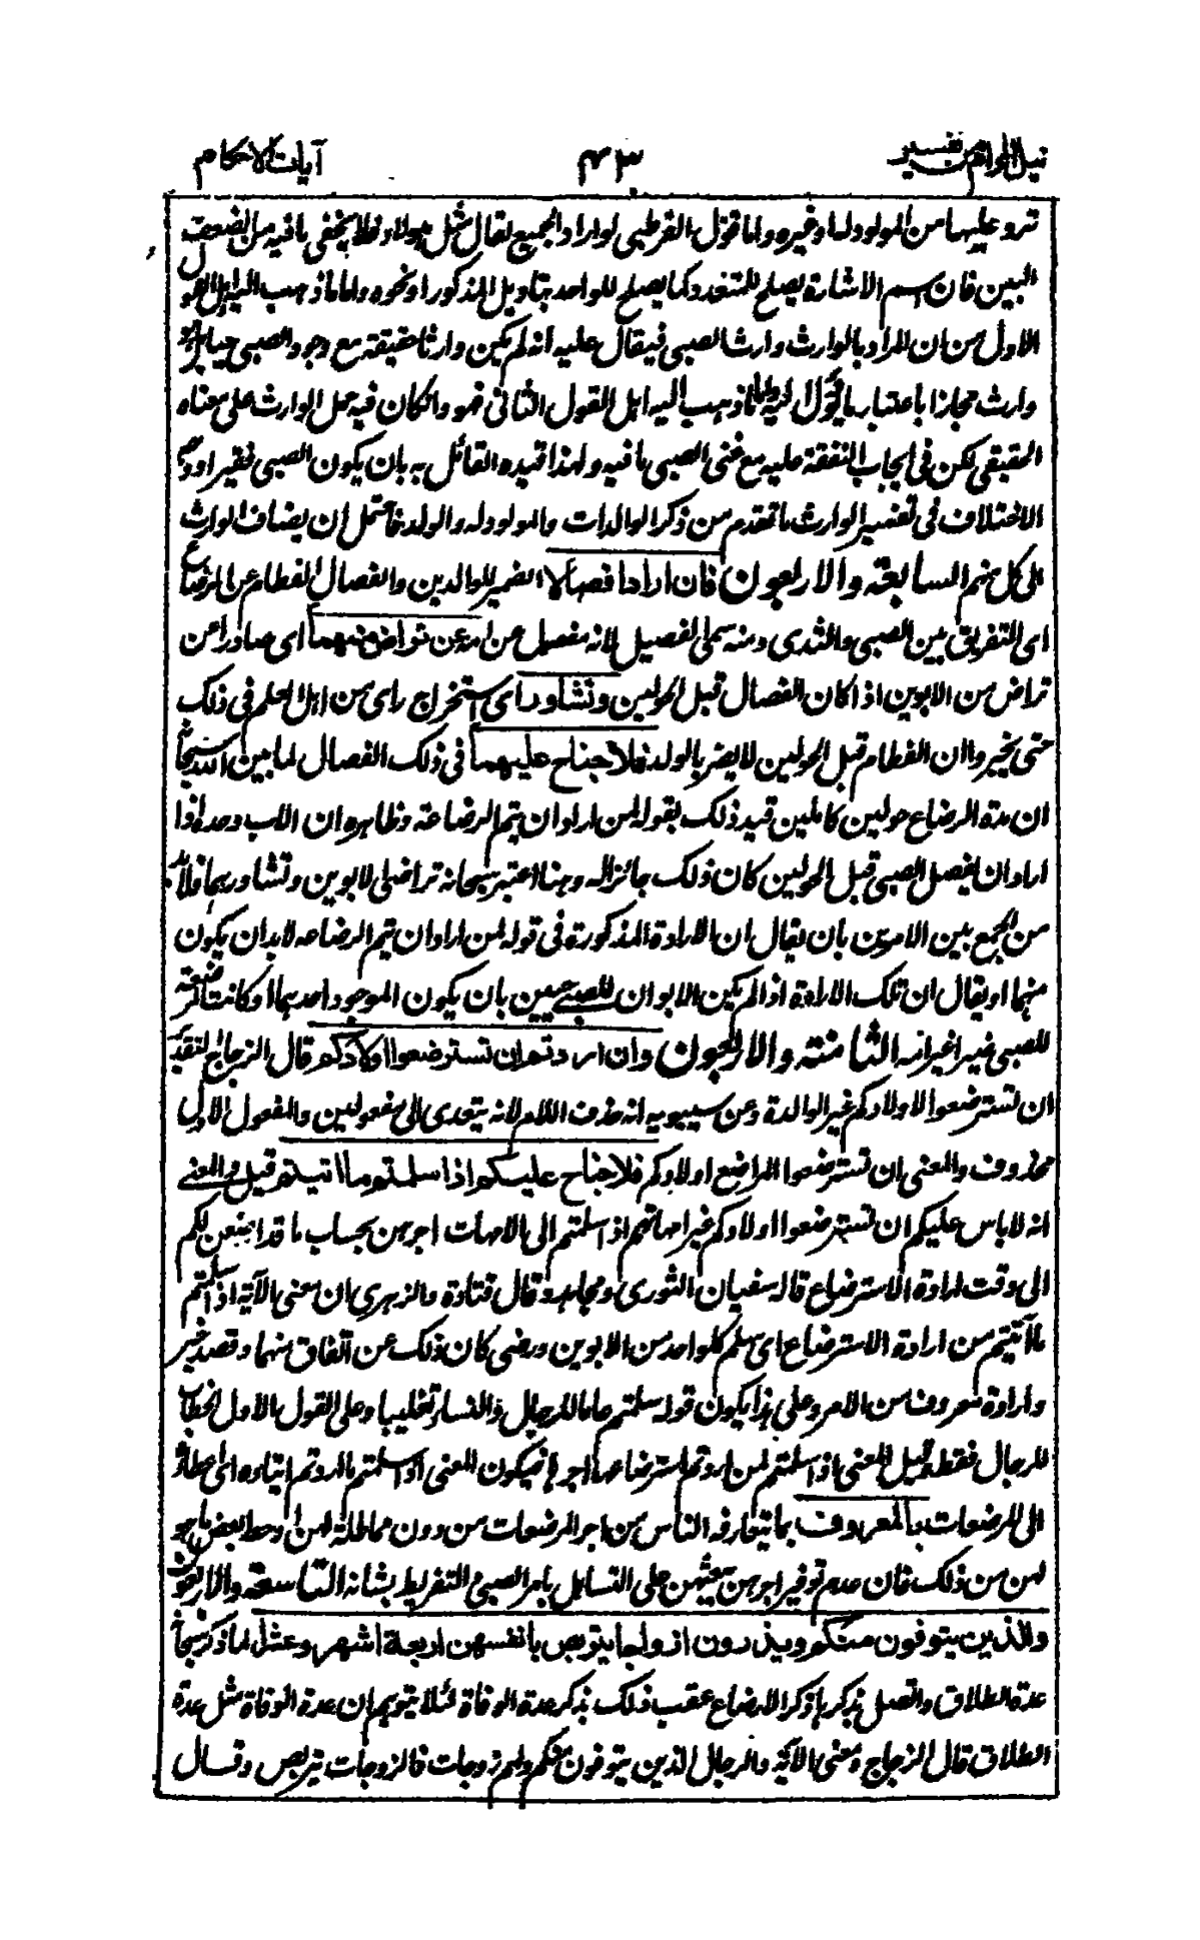 نيل المرام من تفسير ٤٣ آيات الاحكام
ترد عليها من المولود له او غيره واما قول القرطبي لو اراد الجميع لقال مثل هولاء فلا يخفى ما فيه من الضعف
البين فان اسم الاشارة يصلح للمتعدد كما يصلح للواحد بتاويل المذكور او نحوه واما ما ذهب اليه اهل القول
الاول من ان المراد بالوارث وارث الصبي فيقال عليه انه لم يكن وارثا حقيقة مع وجود الصبي حيا بل هو
وارث مجازا باعتبار ما يؤول اليه واما ما ذهب اليه اهل القول الثاني فهو وان كان فيه حمل الوارث على معناه
الحقيقي لكن في ايجاب النفقة عليه مع غنى الصبي ما فيه ولهذا قيده القائل به بان يكون الصبي فقيرا ووجه
الاختلاف في تفسير الوارث ما تقدم من ذكر الوالدات والمولود له والولد فاحتمل ان يضاف الوارث
الى كل منهم السابعة والاربعون فان ارادا فصالا الضمير للوالدين والفصال الفطام عن الرضاع
اي التفريق بين الصبي والثدي ومنه سمي الفصيل لانه مفصول عن امه عن تراض منهما اي صادرا عن
تراض من الابوين اذا كان الفصال قبل الحولين وتشاور اي استخراج راي من اهل العلم في ذلك
حتى يخبروا ان الفطام قبل الحولين لا يضر بالولد فلا جناح عليهما في ذلك الفصال لما بين الله سبحانه
ان مدة الرضاع حولين كاملين قيد ذلك بقوله لمن اراد ان يتم الرضاعة وظاهره ان الاب وحده اذا
اراد ان يفصل الصبي قبل الحولين كان ذلك جائزا له وهنا اعتبر سبحانه تراضي الابوين وتشاورهما فلا بد
من الجمع بين الامرين بان يقال ان الارادة المذكورة في قوله لمن اراد ان يتم الرضاعه لا بد ان يكون
منهما او يقال ان تلك الارادة اذا لم يكن الابوان للصبي حيين بان يكون الموجود احدهما او كانت المرضعة
للصبي غير امه الثامنة والاربعون وان اردتم ان تسترضعوا اولادكم قال الزجاج التقدير
ان تسترضعوا لاولادكم غير الوالدة وعن سيبويه انه حذف اللام لانه يتعدى الى مفعولين والمفعول الاول
محذوف والمعنى ان تسترضعوا المراضع اولادكم فلا جناح عليكم اذا سلمتم ما اتيتم قيل والمعنى
انه لا باس عليكم ان تسترضعوا اولادكم غير امهاتهم اذا سلمتم الى الامهات اجرهن بحساب ما قد ارضعن لكم
الى وقت ارادة الاسترضاع قاله سفيان الثوري ومجاهد وقال قتادة والزهري ان معنى الآية اذا سلمتم
ما آتيتم من ارادة الاسترضاع اي سلم كل واحد من الابوين ورضي كان ذلك عن اتفاق منهما وقصد خير
وارادة معروف من الامر وعلى هذا يكون قوله سلمتم عاما للرجال والنساء تغليبا وعلى القول الاول الخطاب
للرجال فقط وقيل المعنى اذا سلمتم لمن اردتم استرضاعها اجرها فيكون المعنى اذا سلمتم ما اردتم ايتاءه اي اعطاؤه
الى المرضعات بالمعروف بما يتعارفه الناس من اجر المرضعات من دون مماطلة لهن او حط بعض ما هو
لهن من ذلك فان عدم توفير اجرهن يبعثهن على التساهل بامر الصبي والتفريط بشانه التاسعة والاربعون
والذين يتوفون منكم ويذرون ازواجا يتربصن بانفسهن اربعة اشهر وعشرا لما ذكر سبحانه
عدة الطلاق واتصل بذكرها ذكر الارضاع عقب ذلك بذكر عدة الوفاة لئلا يتوهم ان عدة الوفاة مثل عدة
الطلاق قال الزجاج ومعنى الآية والرجال الذين يتوفون منكم ولهم زوجات فالزوجات يتربصن وقال